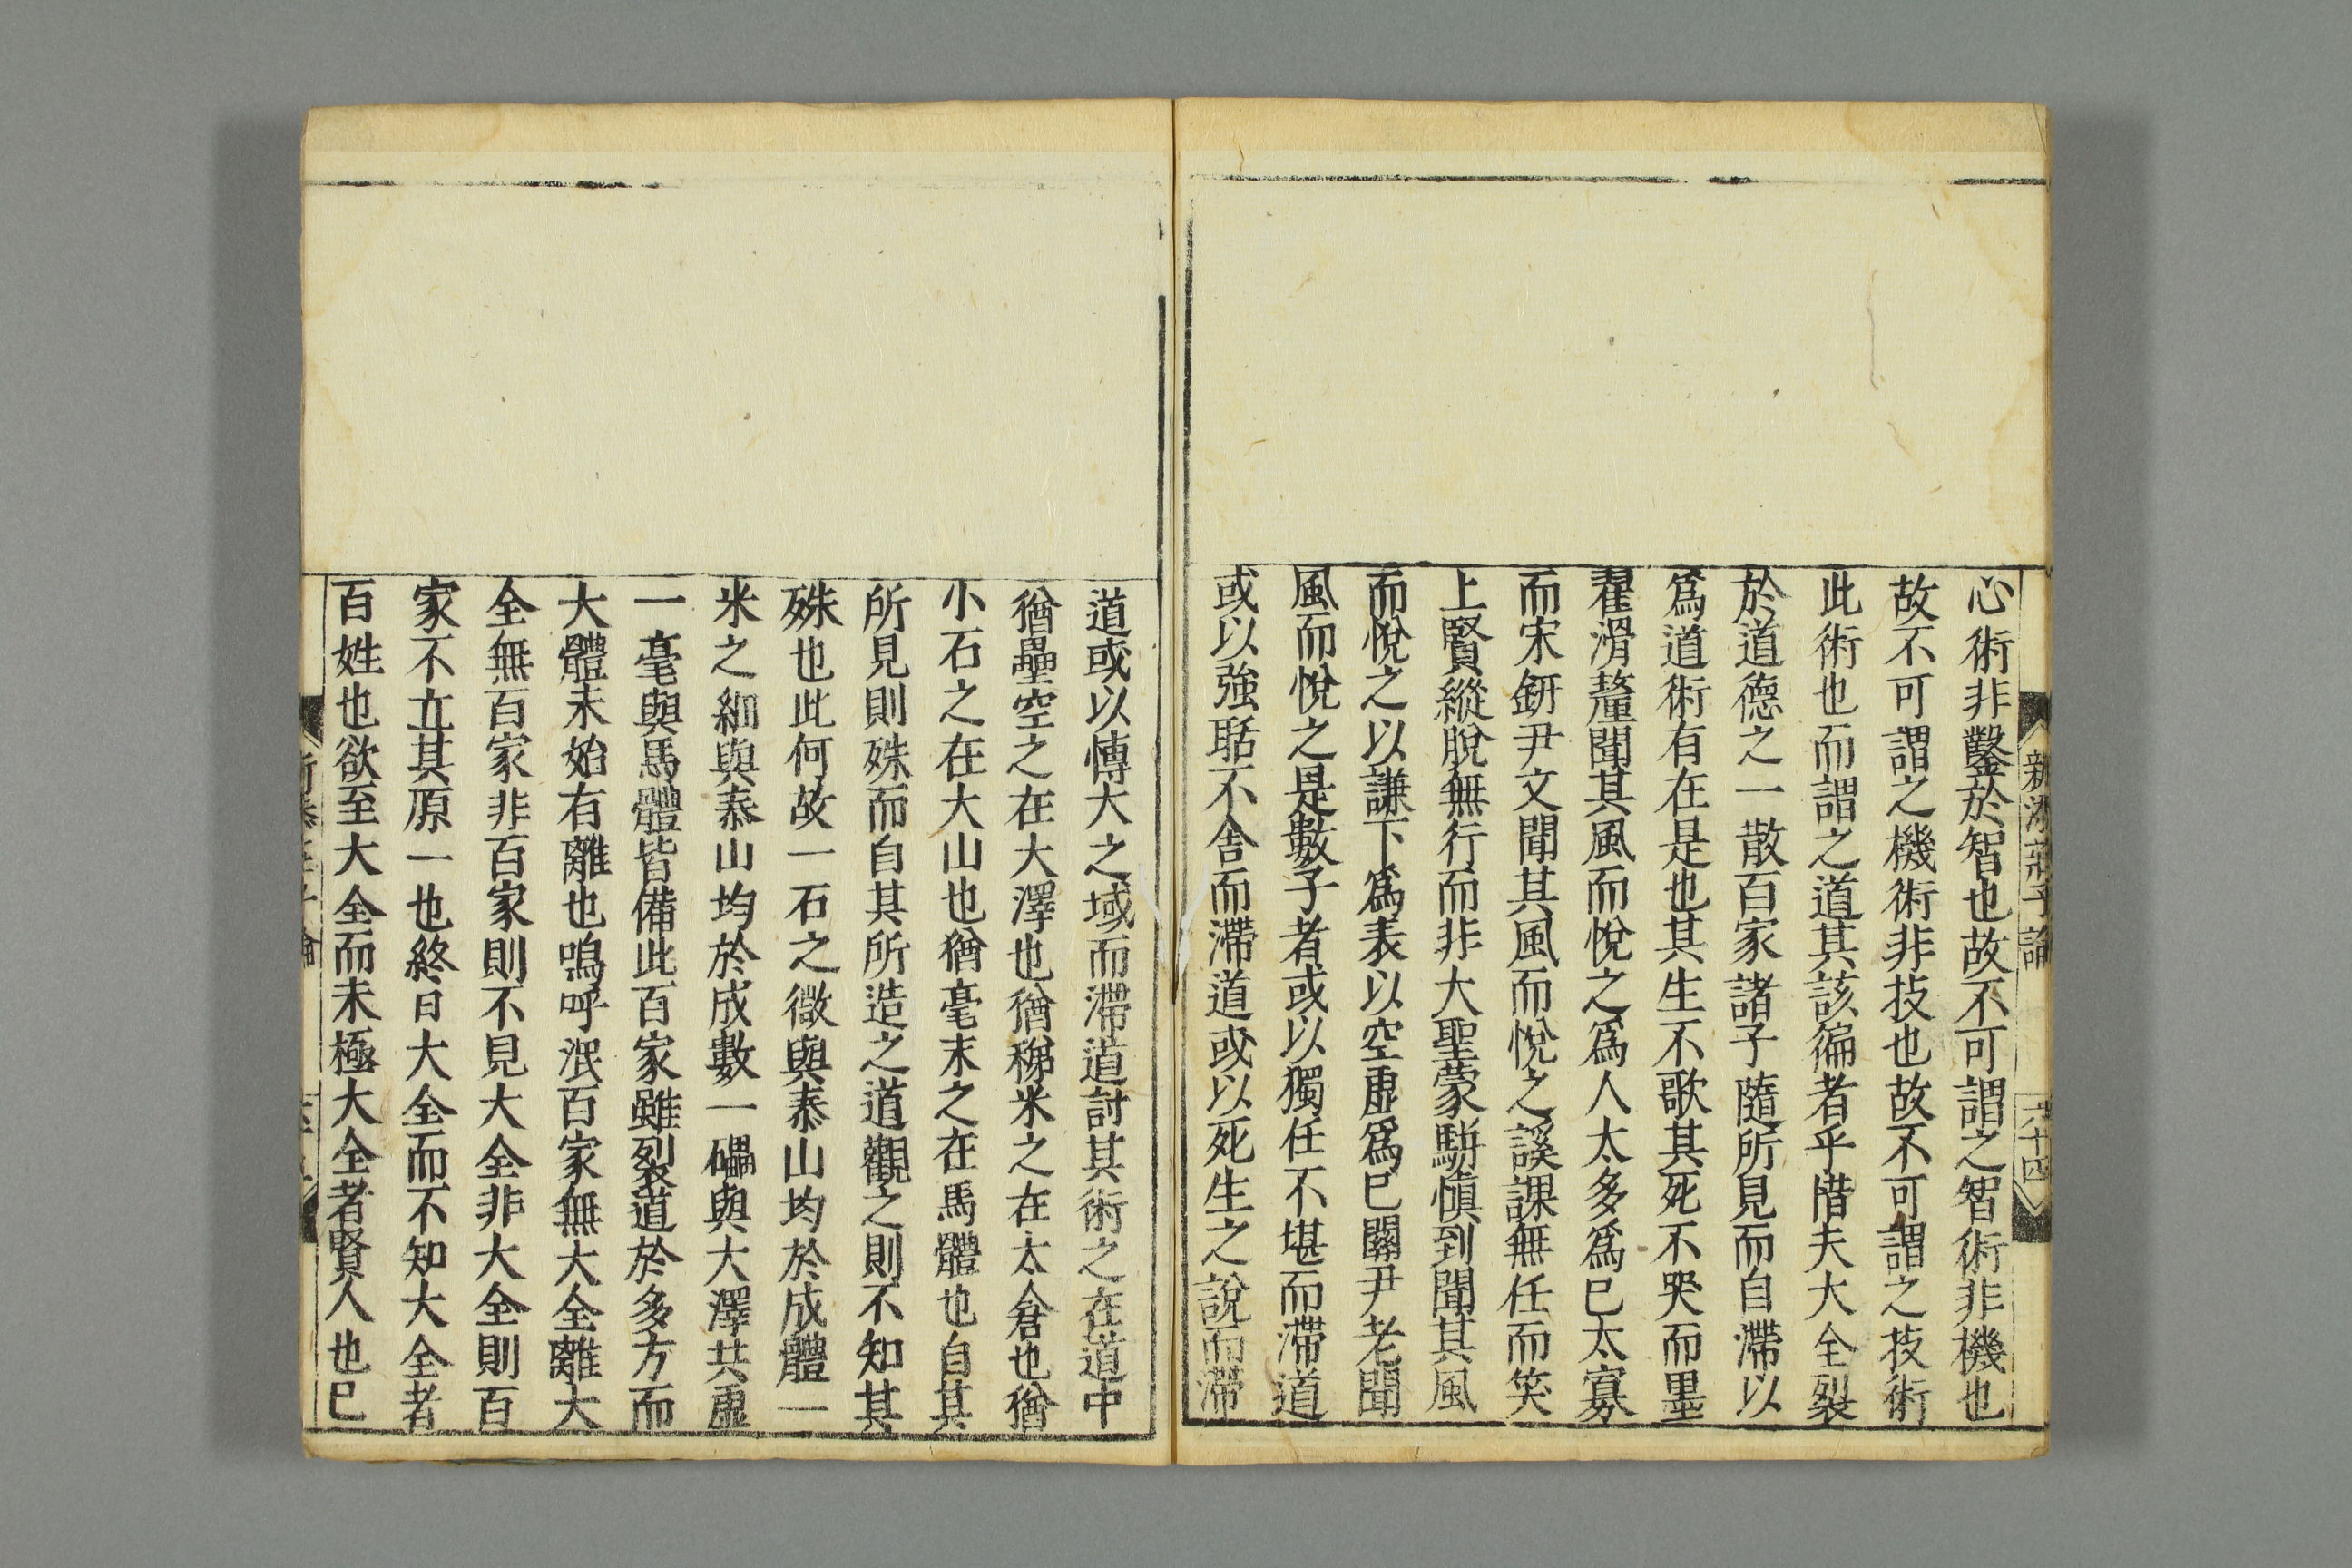 新添莊子論
六十四
心術非鑿於智也故不可謂之智術非機也
故不可謂之機術非技也故不可謂之技術
此術也而謂之道其該徧者乎惜夫大全裂
於道德之一散百家諸子隨所見而自滯以
爲道術有在是也其生不歌其死不哭而墨
翟滑釐聞其風而悅之爲人太多爲已太寡
而宋鈃尹文聞其風而悅之謑課無任而笑
上賢縱脫無行而非大聖蒙騈愼到聞其風
而悅之以謙下爲表以空虛爲已關尹老聞
風而悅之是數子者或以獨任不堪而滯道
或以強聒不舍而滯道或以死生之說而滯
道或以慱大之域而滯道討其術之在道中
猶壘空之在大澤也猶稊米之在太倉也猶
小石之在大山也猶毫末之在馬體也自其
所見則殊而自其所造之道觀之則不知其
殊也此何故一石之微與泰山均於成體一
米之細與泰山均於成數一礨與大澤共虛
一毫與馬體皆備此百家雖裂道於多方而
大體未始有離也嗚呼泯百家無大全離大
全無百家非百家則不見大全非大全則百
家不立其原一也終日大全而不知大全者
百姓也欲至大全而未極大全者賢人也已